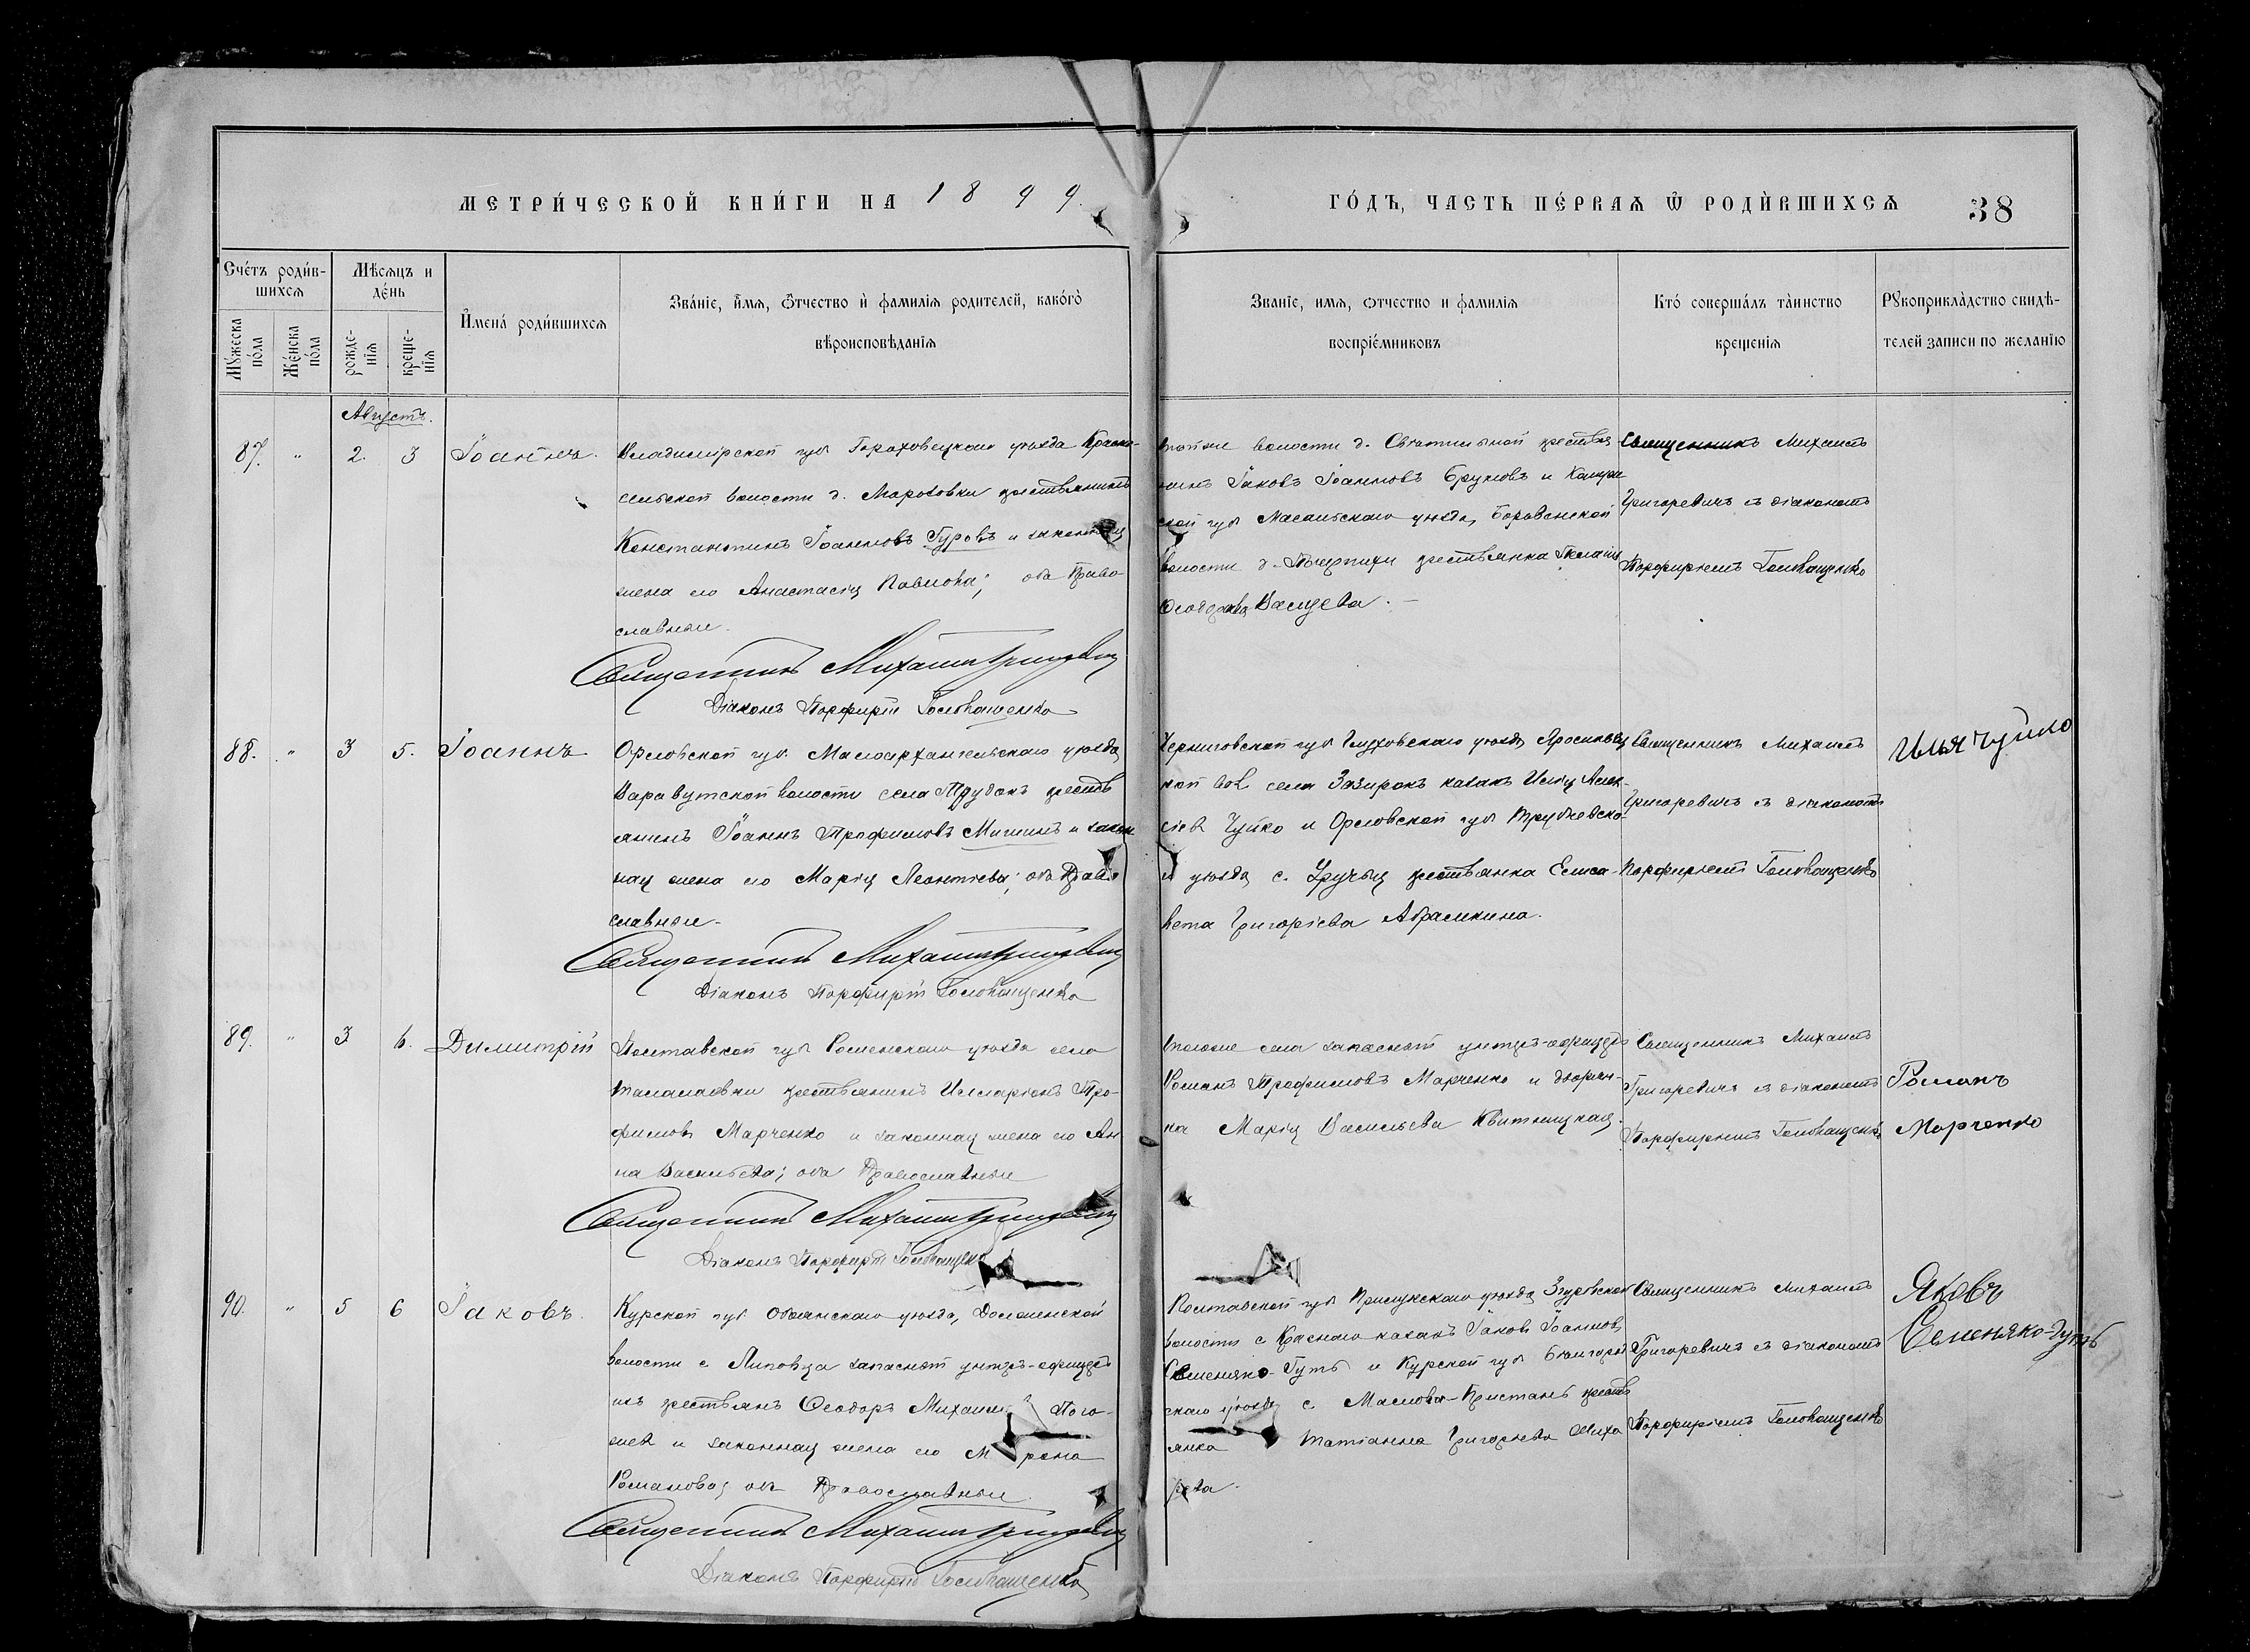 МЕТРИ́ЧЕСКОЙ КНИ́ГИ НА 1899.
ГО́ДЪ, ЧАСТЬ ПЕ́РВАѦ Ѿ РОДИ́ВШИХСѦ 38
Сче́тъ роди́в-
шихсѧ
Мѣ́сѧцъ и
де́нь
Мꙋ́жеска
по́ла
Же́нска
по́ла
рожде-
нїѧ
креще-
нїѧ
И҆мена́ роди́вшихсѧ
Зва́нїе, и҆́мѧ, ѻ҆́тчество и҆ фамилїѧ родителей, како́гѡ
вѣроисповѣ́данїѧ
Званїе, имѧ, ѻтчество и фамилїѧ
воспрїе́мниковъ
Кто́ соверша́лъ та́инство
крещенїѧ
Рꙋкоприкла́дство свидѣ́-
телей записи по желанїю
Августъ.
87. " 2. 3 Іоаннъ.
Владимірской губ Гороховецкаго уѣзда Красно-
сельской волости д. Морозовки крестьянинъ
Константинъ Іоанновъ Гуровъ и законная
жена его Анастасія Павлова; оба Право-
славные.
Священникъ Михаилъ Григоревичъ
Діаконъ Порфирій Головащенко
тойже волости д. крестья-
нинъ Іаковъ Іоанновъ и
ской губ уѣзда,
волости д. крестьянка
Ѳеодорова
Священникъ Михаилъ
Григоревичъ съ діакономъ
Порфиріемъ Головащенко
88. " 3 5. Іоаннъ
Орловской губ. Малоархангельскаго уѣзда
волости села Трудокъ крестья
янинъ Іоаннъ Трофимовъ Мишинъ и закон
ная жена его Марія Леонтіева; оба Право
славные.
Священникъ Михаилъ Григоревичъ
Діаконъ Порфирій Головащенко
Черниговской губ Глуховскаго уѣзда
кой вол села Зазирокъ казакъ Илія Алек-
сіевъ Чуйко и Орловской губ Трубчевска-
го уѣзда с. крестьянка Елиса-
вета Григоріева Абрамкина.
Священникъ Михаилъ
Григоревичъ съ діакономъ
Порфиріемъ Головащенко
Илья Чуйко
89. " 3 6. Димитрій
Полтавской губ Роменскаго уѣзда села
Талалаевки крестьянинъ Илларіонъ Тро-
фимовъ Марченко и законная жена его Ан
на Васильева; оба Православные
Священникъ Михаилъ Григоревичъ
Діаконъ Порфирій Головащенко
тогоже села запасный унтеръ-офицеръ
Романъ Трофимовъ Марченко и дворян-
ка Марія Васильева Квитницкая.
Священникъ Михаилъ
Григоревичъ съ діакономъ
Порфиріемъ Головащенко
Романъ
Марченко
90. " 5 6 Іаковъ.
Курской губ Обоянскаго уѣзда,
волости с Липовца запасный унтеръ-офицеръ
изъ крестьянъ Ѳеодоръ
и законная жена его
Романова; оба Православные.
Священникъ Михаилъ Григоревичъ
Діаконъ Порфирій Головащенко
Полтавской губ Прилукскаго уѣзда Згуровской
волости с Краснаго казакъ Іаковъ Іоанновъ
Семеняко-Гуть и Курской губ Бѣлгород
скаго уѣзда с. Маслова-Пристань кресть
янка Татіанна Григорьева
Священникъ Михаилъ
Григоревичъ съ діакономъ
Порфиріемъ Головащенко
Яковъ
Семеняко-Гуть